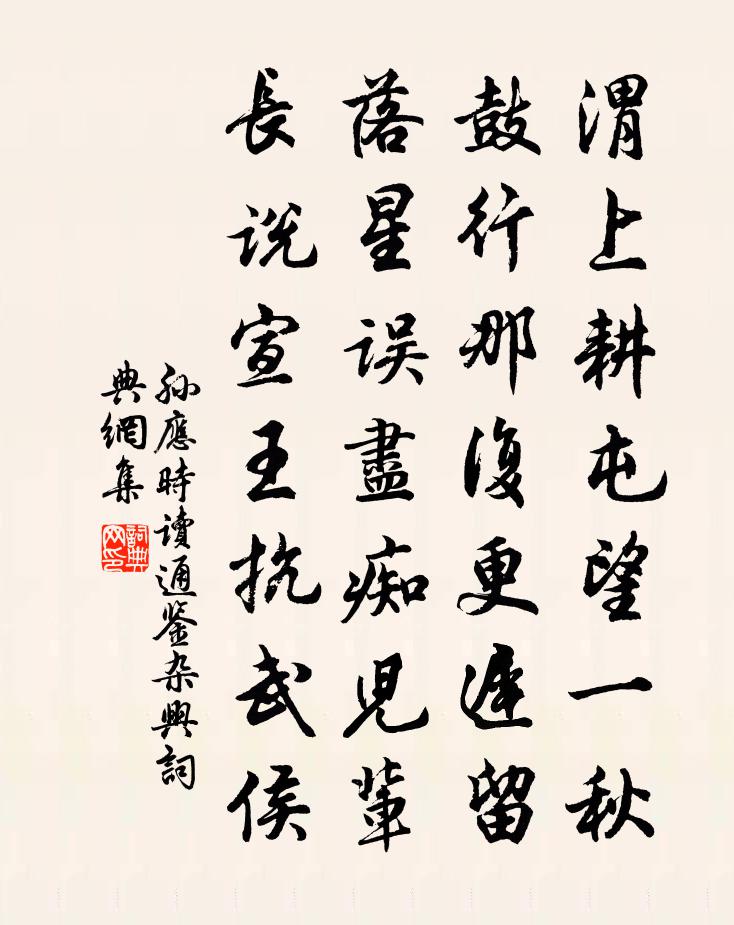 渭上耕屯望一秋
鼓行那復更遲留
落星误盡痴児輩
長説宣王抗武侯
孙應時读通鉴杂興詞
典網集
詞典
网印